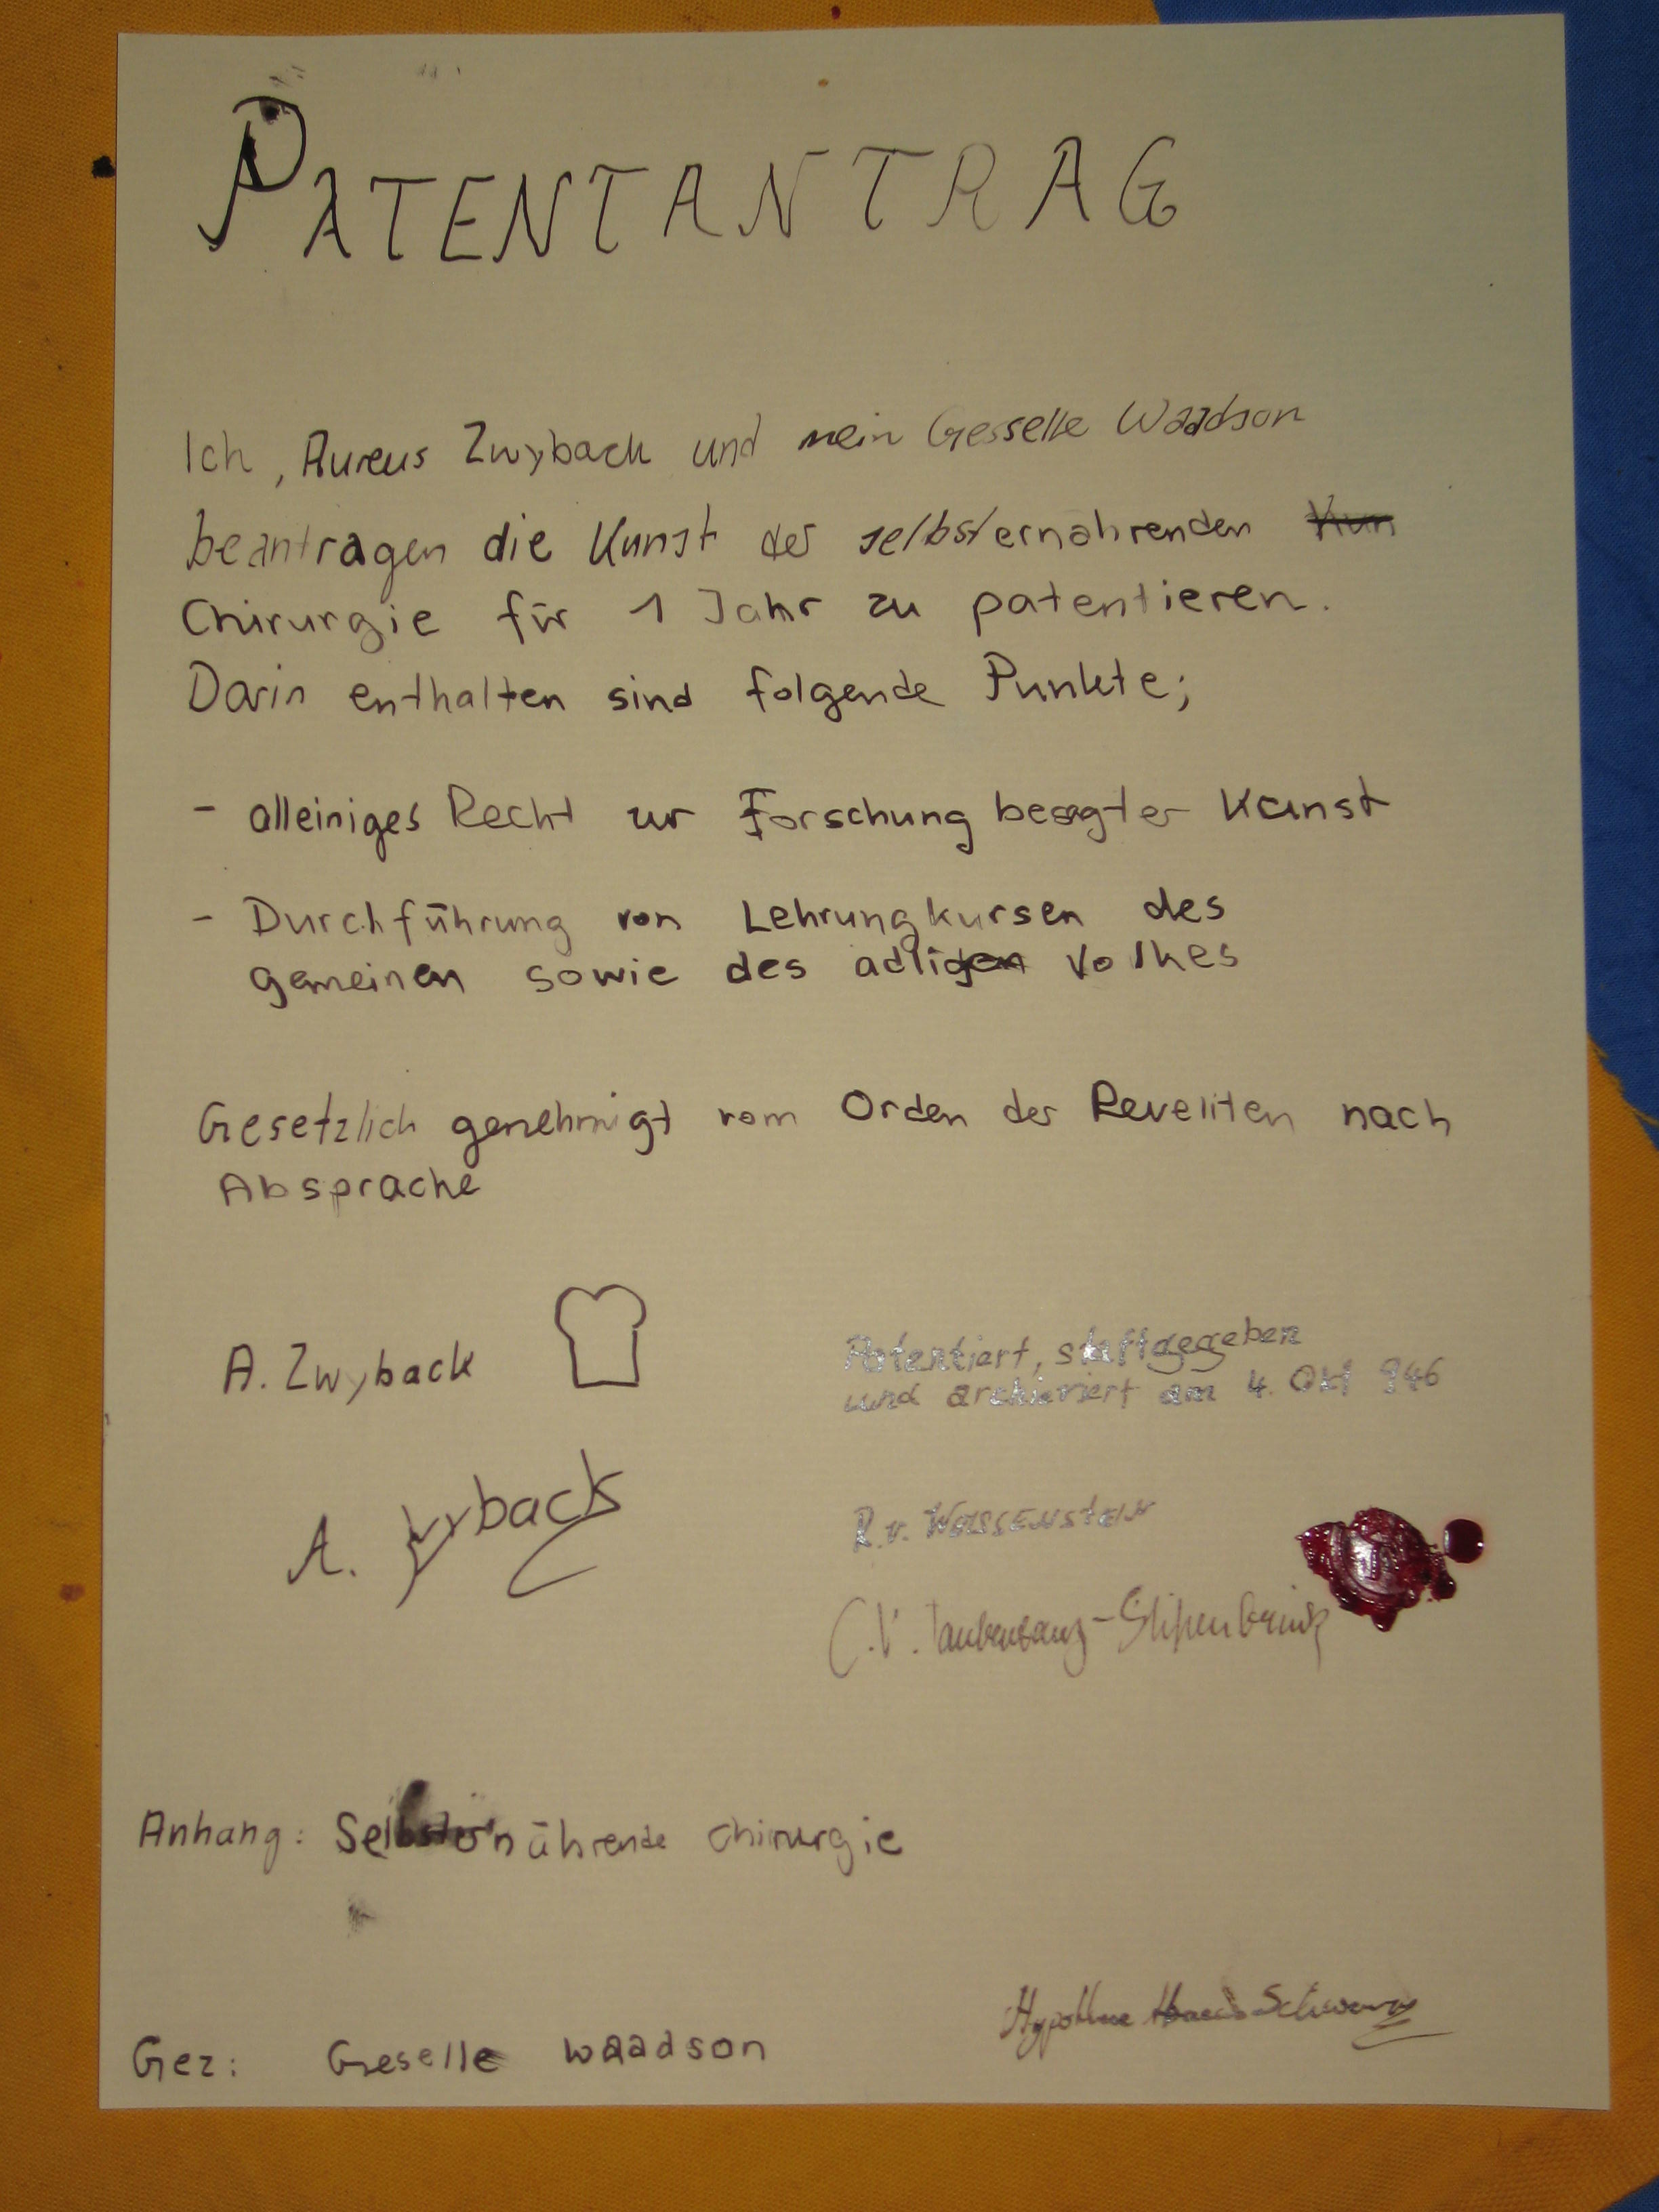 PATENTANTRAG
Ich, Aureus Zwyback und mein Gesselle Waadson
beantragen die Kunst der selbsternährenden Kun
Chirurgie für 1 Jahr zu patentieren.
Darin enthalten sind folgende Punkte;
- alleiniges Recht zur Forschung besagter Kunst
- Durchführung von Lehrungkursen des
gemeinen sowie des adligen Volkes
Gesetzlich genehmigt vom Orden der Reveliten nach
Absprache
A. Zwyback
A. Zwyback
Patentiert, stattgegeben
und archiviert am 4. Okt 946
R. v. Weissenstein
C. V.
Anhang: Selbsternährende Chirurgie
Gez: Geselle Waadson